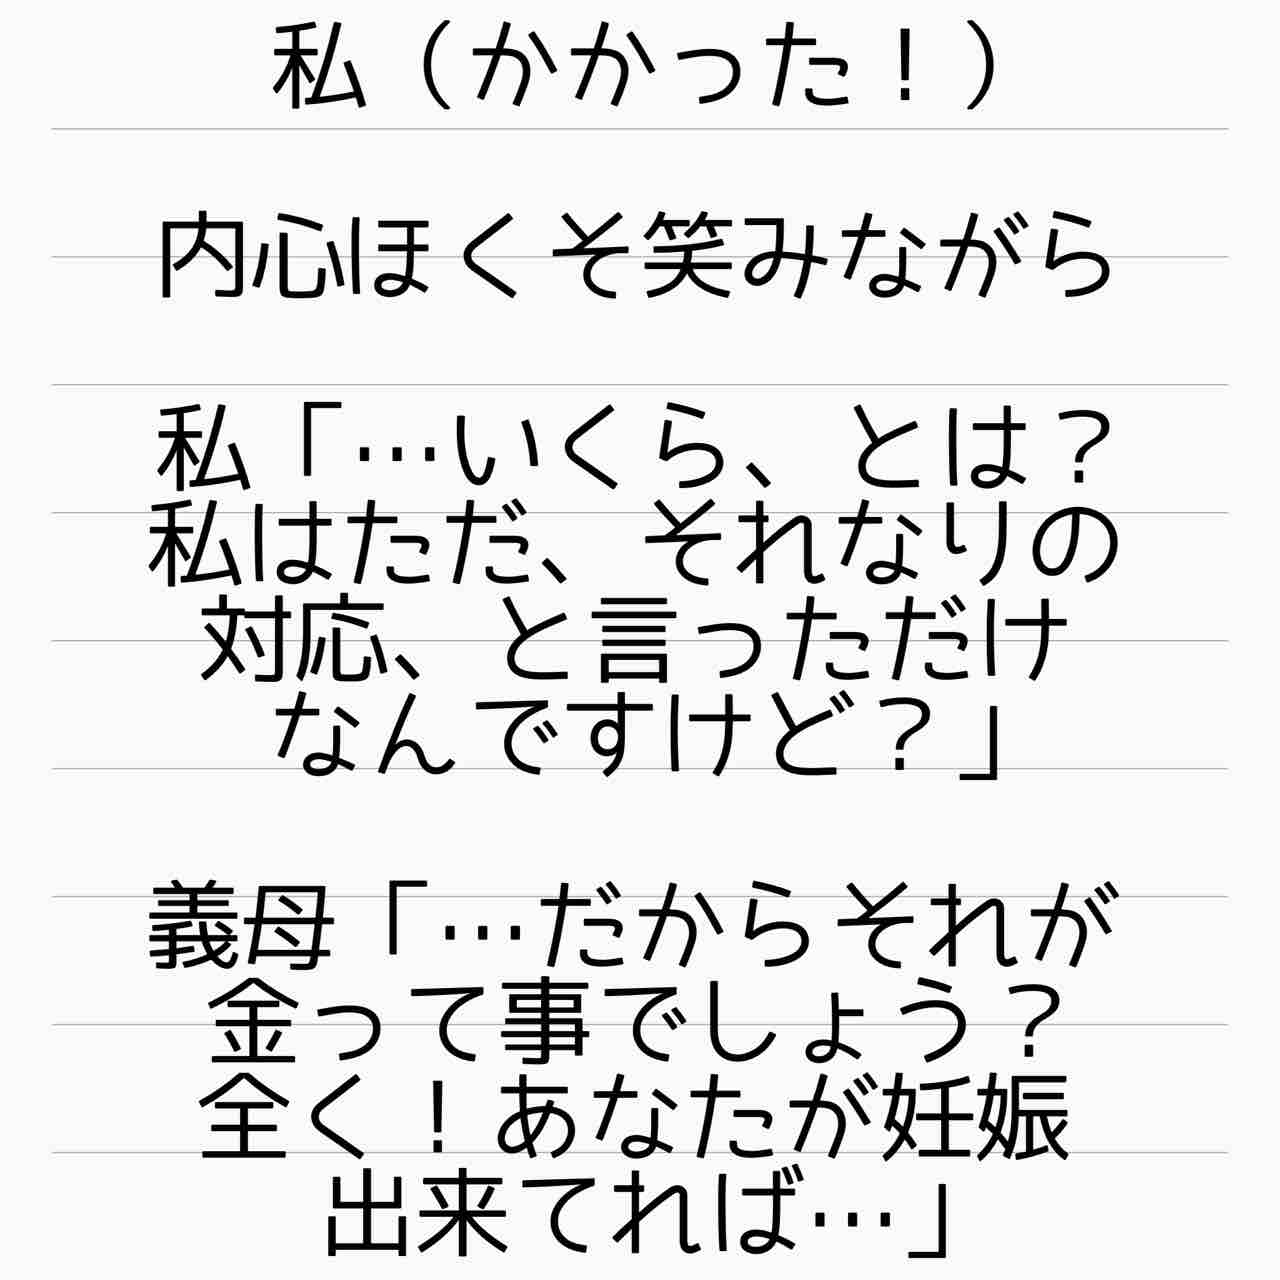 私（かかった！）
内心ほくそ笑みながら
私「…いくら、とは？
私はただ、それなりの
対応、と言っただけ
なんですけど？」
義母「…だからそれが
金って事でしょう？
全く！あなたが妊娠
出来てれば…」